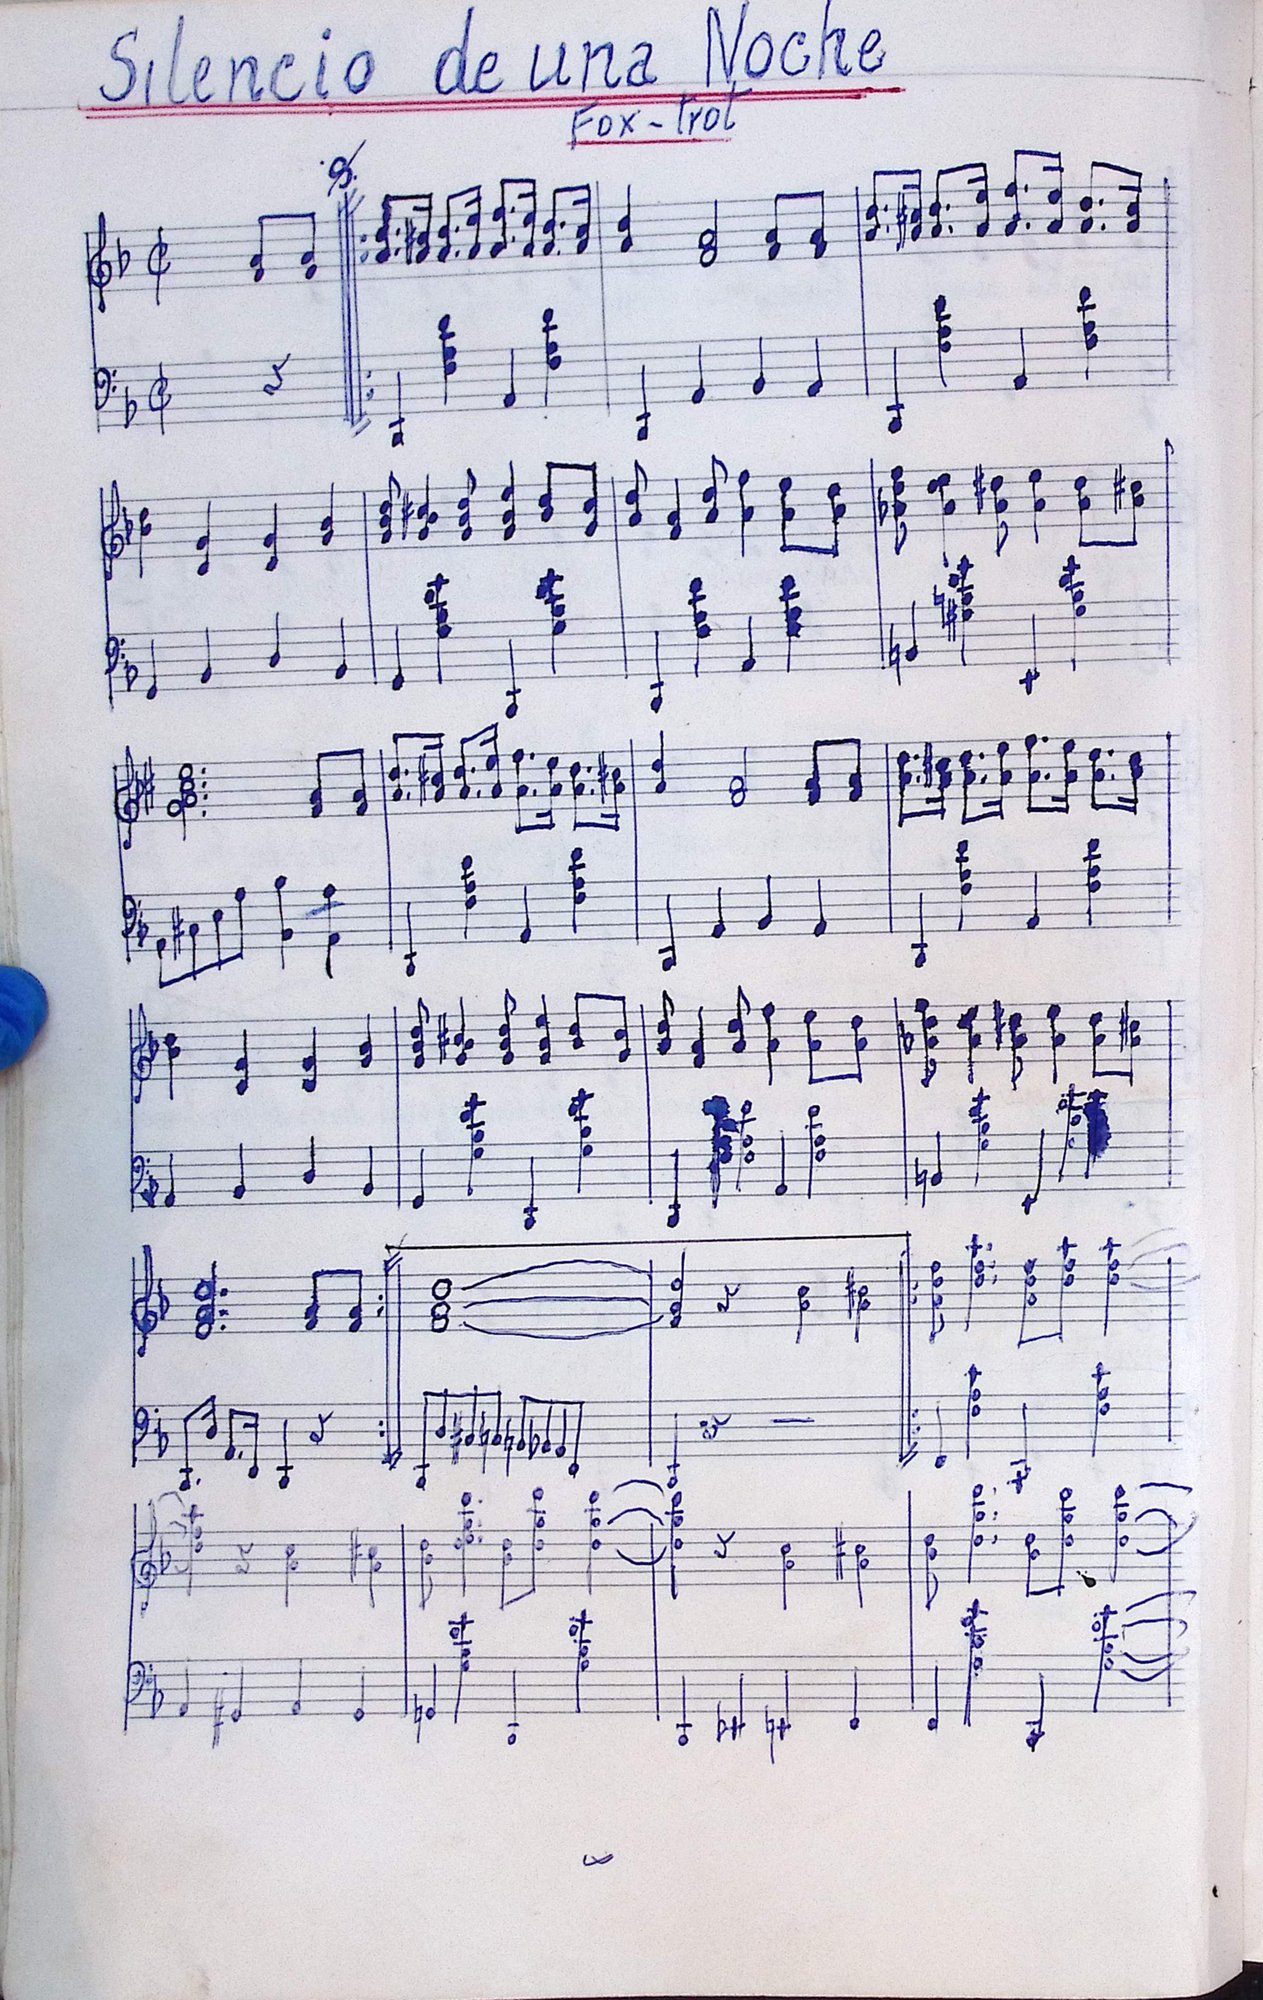 Silencio de una Noche
Fox-trot